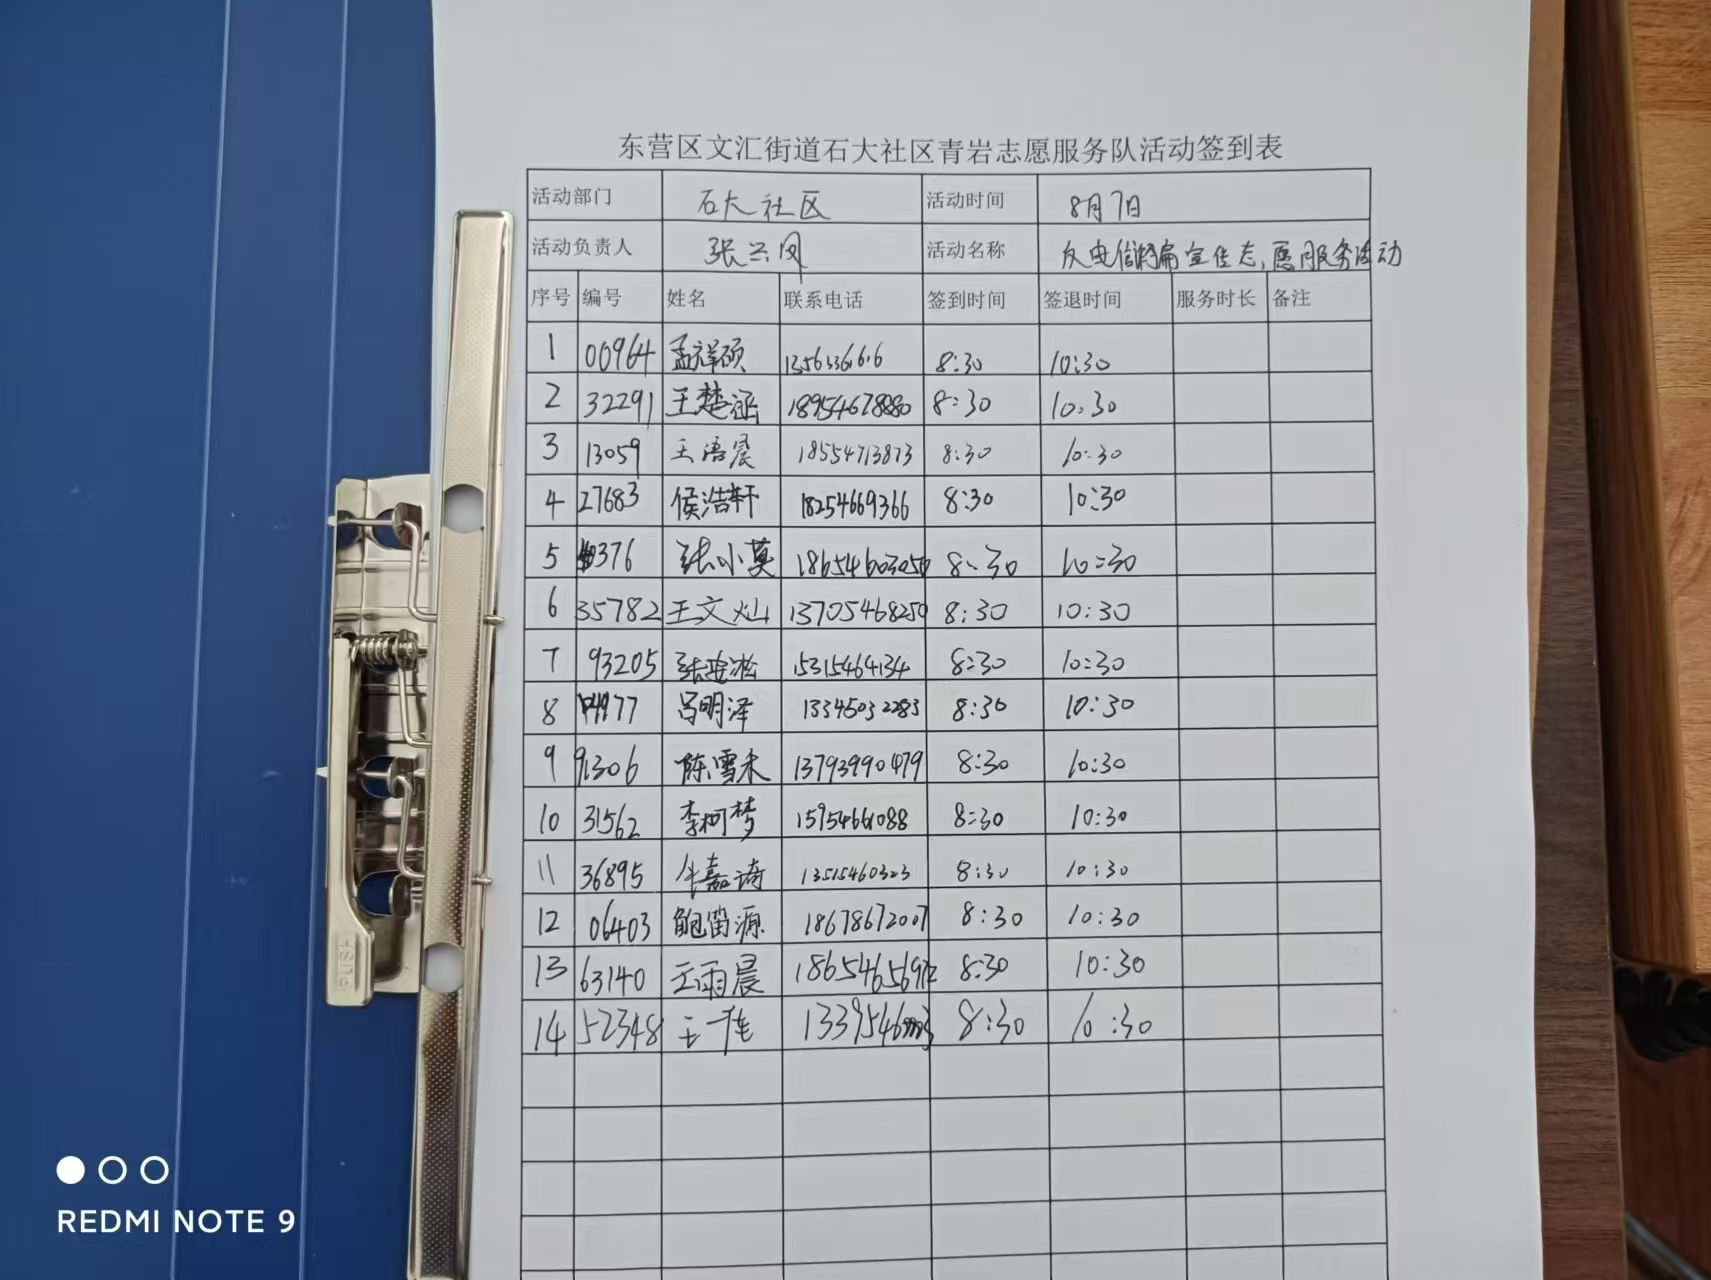 东营区文汇街道石大社区青岩志愿服务队活动签到表
活动部门 石大社区 活动时间 8月7日
活动负责人 张兰凤 活动名称 反电信诈骗宣传志愿服务活动
序号 编号 姓名 联系电话 签到时间 签退时间 服务时长 备注
1 00964 孟祥硕 8:30 10:30
2 32291 王楚涵 18954678880 8:30 10:30
3 13059 王语晨 18554713873 8:30 10:30
4 27683 侯浩轩 18254669366 8:30 10:30
5 张小莫 8:30 10:30
6 35782 王文灿 13705468250 8:30 10:30
7 93205 15315464134 8:30 10:30
8 吕明泽 13345032283 8:30 10:30
9 91306 陈雪禾 13793990479 8:30 10:30
10 31562 李柯梦 15954661088 8:30 10:30
11 36895 牛嘉琦 13515460323 8:30 10:30
12 06403 鲍笛源 18678672007 8:30 10:30
13 63140 王雨晨 8:30 10:30
14 52348 王一 8:30 10:30
HSUP
REDMI NOTE 9